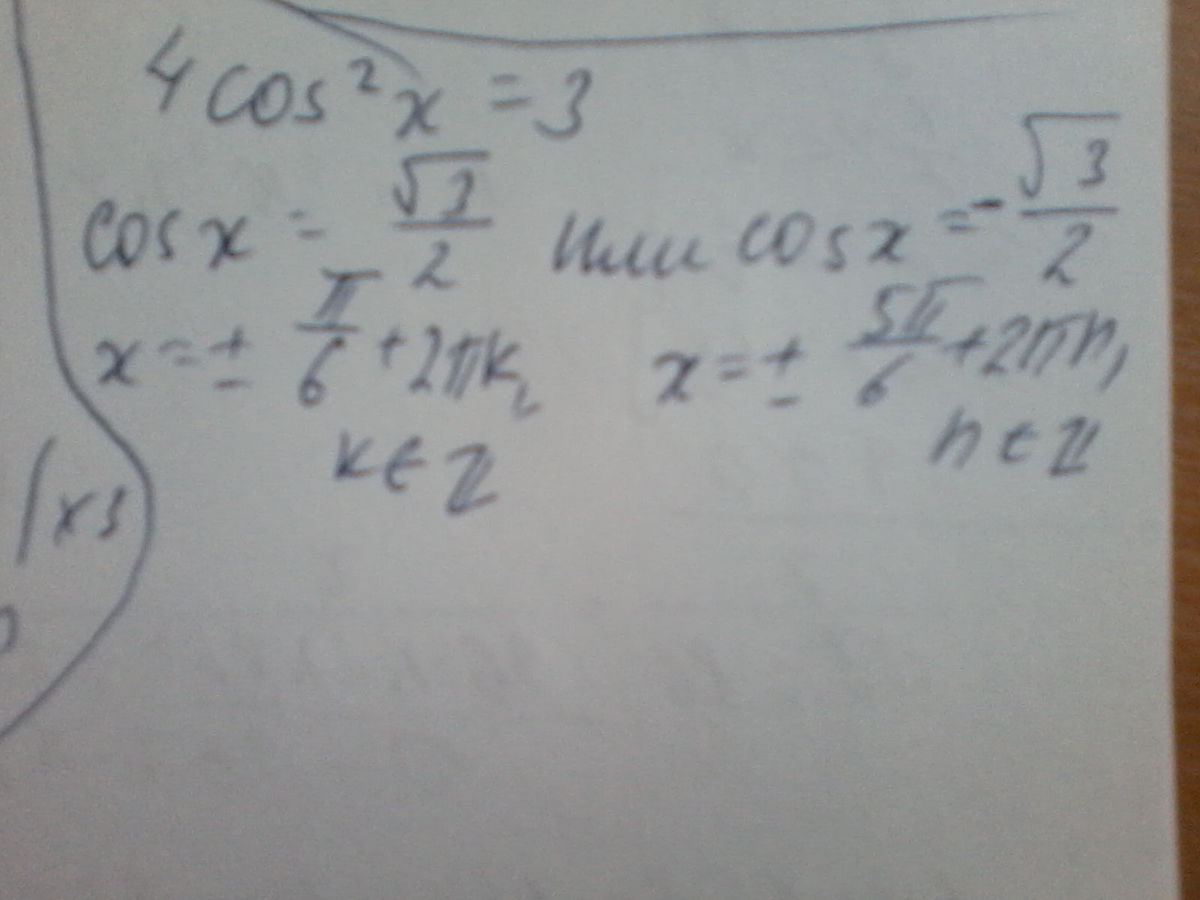 4 cos² x = 3
cos x = √3/2 или cos x = -√3/2
x = ± π/6 + 2πk, x = ± 5π/6 + 2πn,
k ∈ ℤ n ∈ ℤ